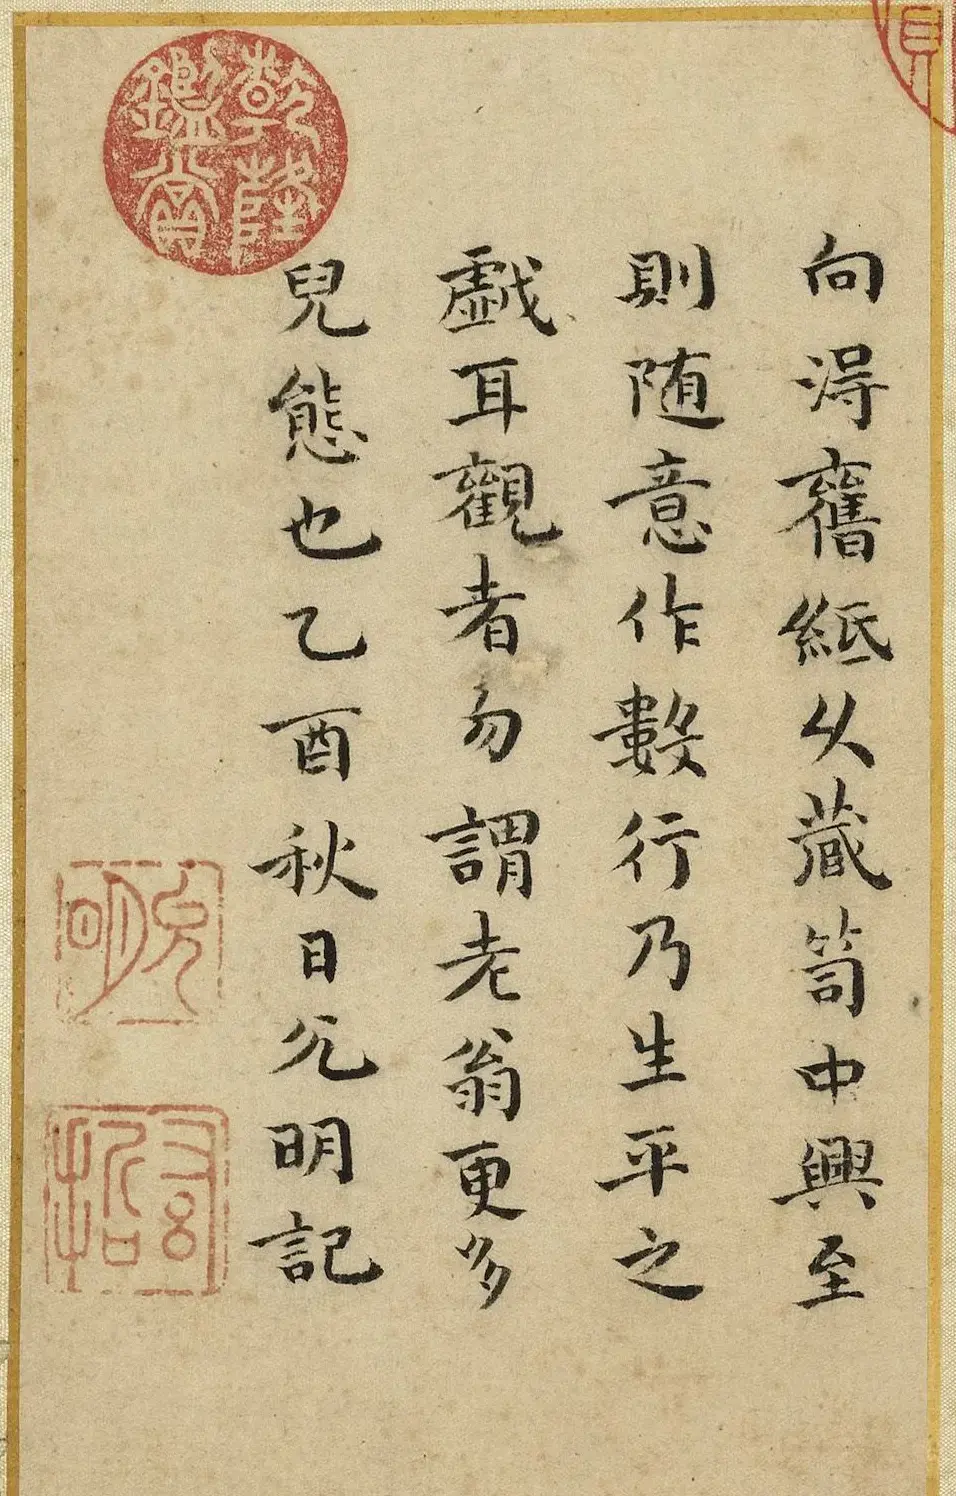 向淂舊紙从藏笥中興至
則随意作數行乃生平之
戯耳觀者勿謂老翁更多
兒態也乙酉秋日允明記
乾隆鑑賞
允明